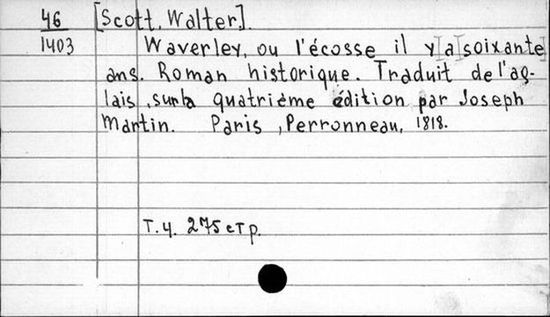 46 [Scott, Walter].
1403 Waverley, ou l'écosse il y a soixante
ans. Roman historique. Traduit de l'ag-
lais, surla quatrième édition par Joseph
Martin. Paris, Perronneau, 1818.
T.4. 275 стр.